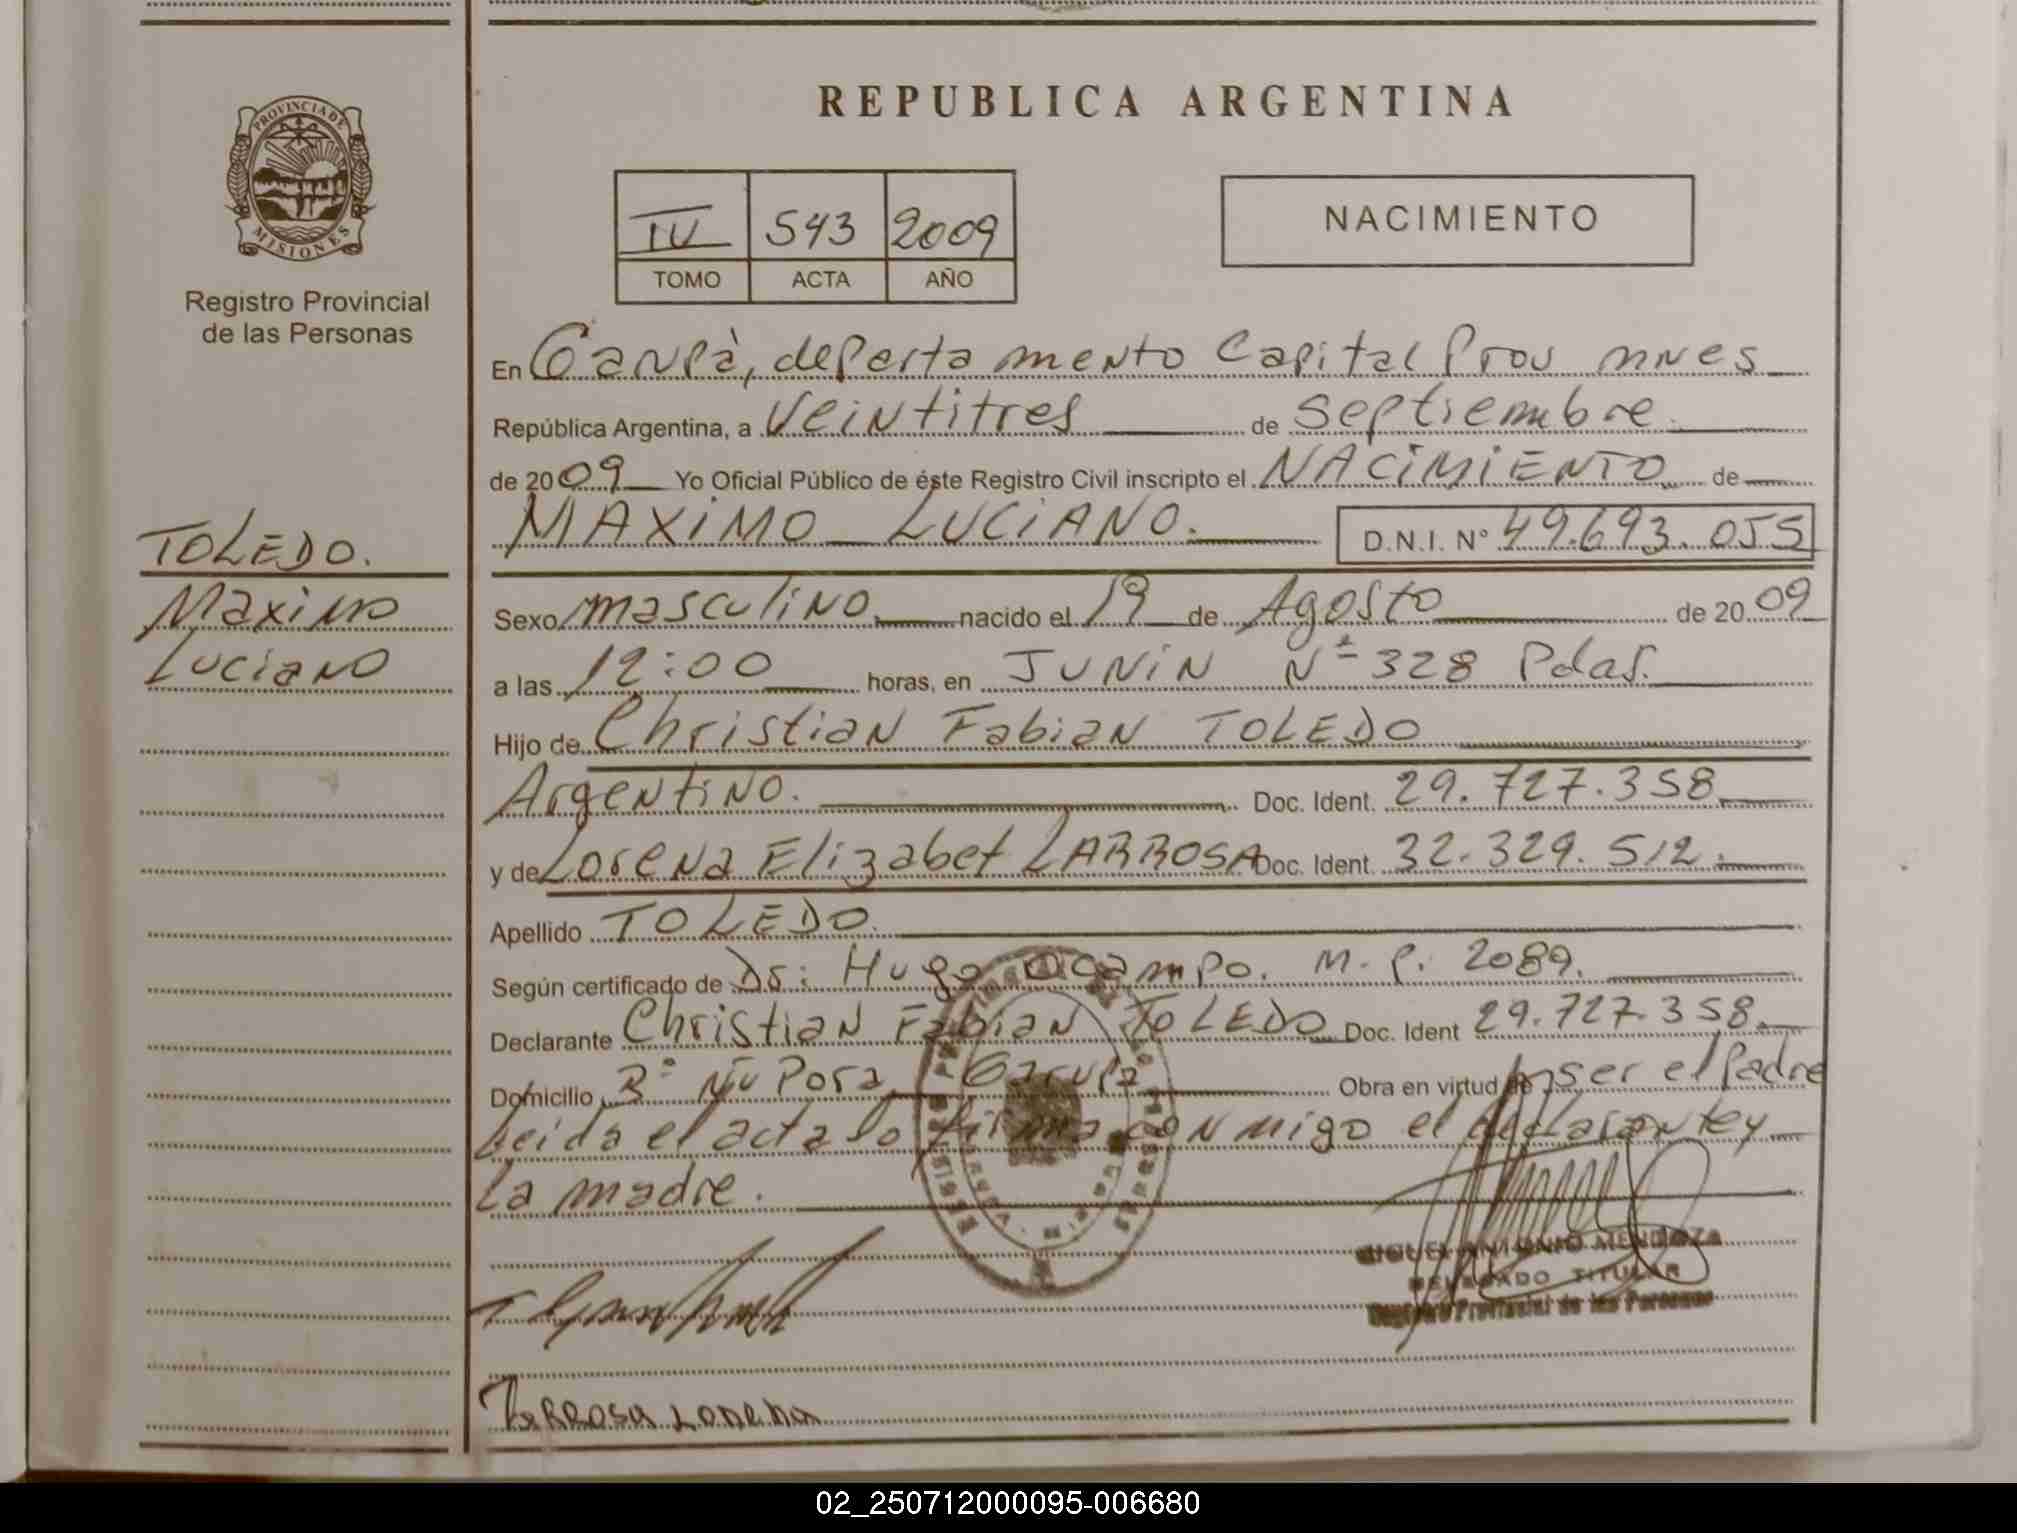 REPUBLICA ARGENTINA
PROVINCIA DE MISIONES
Registro Provincial
de las Personas
IV 543 2009
TOMO ACTA AÑO
NACIMIENTO
TOLEDO.
Maximo
Luciano
En Garupà, departamento Capital Prov mnes
República Argentina, a Veintitres de Septiembre
de 2009 Yo Oficial Público de éste Registro Civil inscripto el NACIMIENTO de
MAXIMO LUCIANO. D.N.I. N° 49.693.055
Sexo masculino nacido el 19 de Agosto de 2009
a las 12:00 horas, en JUNIN Nº 328 Pdas.
Hijo de Christian Fabian TOLEDO
Argentino. Doc. Ident. 29.727.358
y de Lorena Elizabet LARROSA Doc. Ident. 32.329.512.
Apellido TOLEDO.
Según certificado de Dr: Hugo Ocampo. M.P. 2089.
Declarante Christian Fabian TOLEDO Doc. Ident 29.727.358.
Domicilio Bº Ñu Pora Garupa Obra en virtud de ser el Padre
Leida el acta lo firma conmigo el declarante y
La madre.
MIGUEL ANTONIO MENDOZA
DELEGADO TITULAR
Registro Provincial de las Personas
Larrosa Lorena
02_250712000095-006680